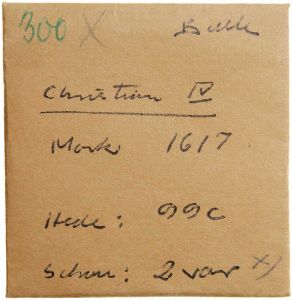 300 X
Christian IV
Mark 1617
Hede: 99C
Schou: 2 var x)